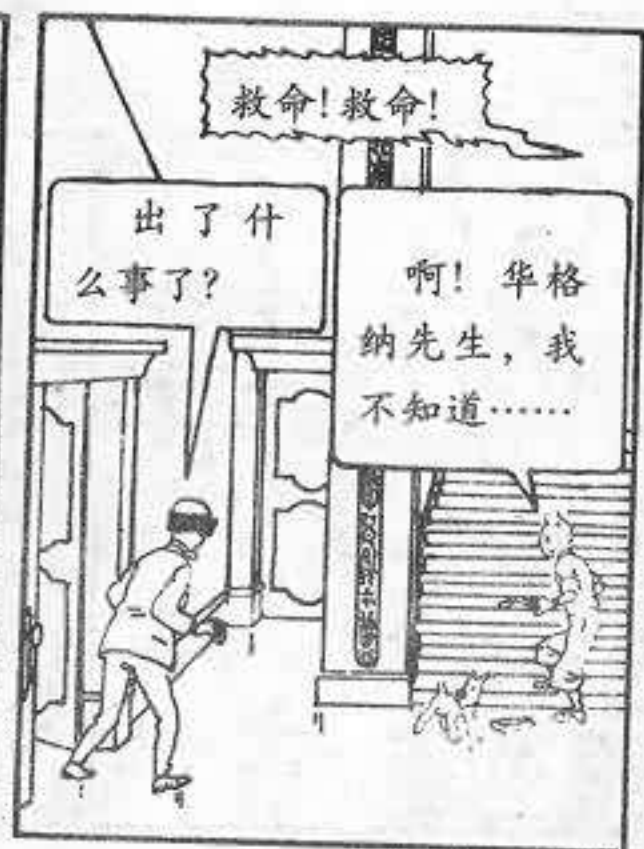 救命!救命!
出了什
么事了?
啊!华格
纳先生,我
不知道……